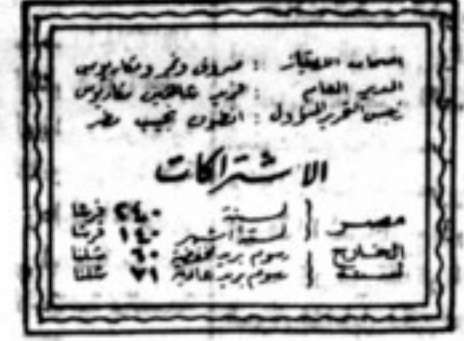 أصحاب الامتياز : صروف ونمر ومكاريوس
المدير العام : حزب شاهين مكاريوس
رئيس التحرير المسؤول : انطون نجيب مطر
الاشتراكات
مصر لسنة ٢٤٠ قرشا
لستة اشهر ١٤٠ قرشا
الخارج رسوم بريد مخفضة ٦٠ شلنا
لسنة رسوم بريد عالية ٧١ شلنا